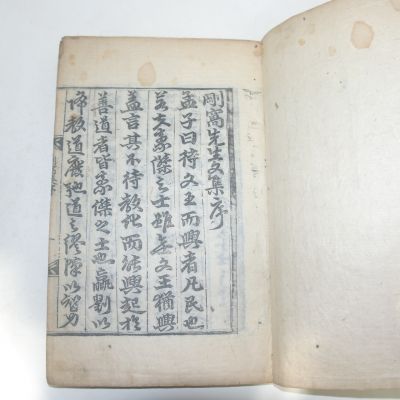 剛窩先生文集序
孟子曰待文王而興者凡民也
若夫豪傑之士雖無文王猶興
蓋言其不待敎化而能興起於
善道者皆豪傑之士也嬴劉以
降敎道廢弛道之浮陳以智力